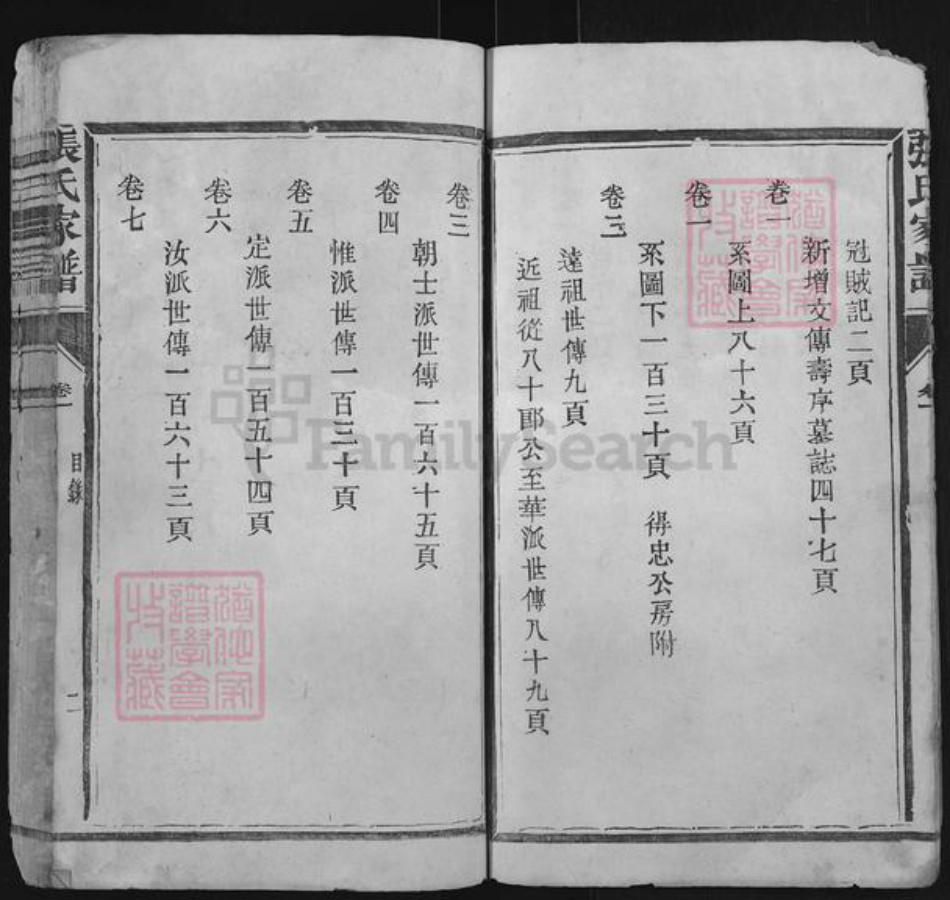 張氏家譜
冦賊記二頁
新增文傳壽序墓誌四十七頁
卷一
系圖上八十六頁
卷一
系圖下一百三十頁 得忠公房附
卷二
遠祖世傳九頁
近祖從八十郎公至華派世傳八十九頁
卷三
朝士派世傳一百六十五頁
卷四
惟派世傳一百三十頁
卷五
定派世傳一百五十四頁
卷六
汝派世傳一百六十三頁
卷七
張氏家譜 卷一 目錄 二
猶他家
譜學會
收藏
猶他家
譜學會
收藏
FamilySearch